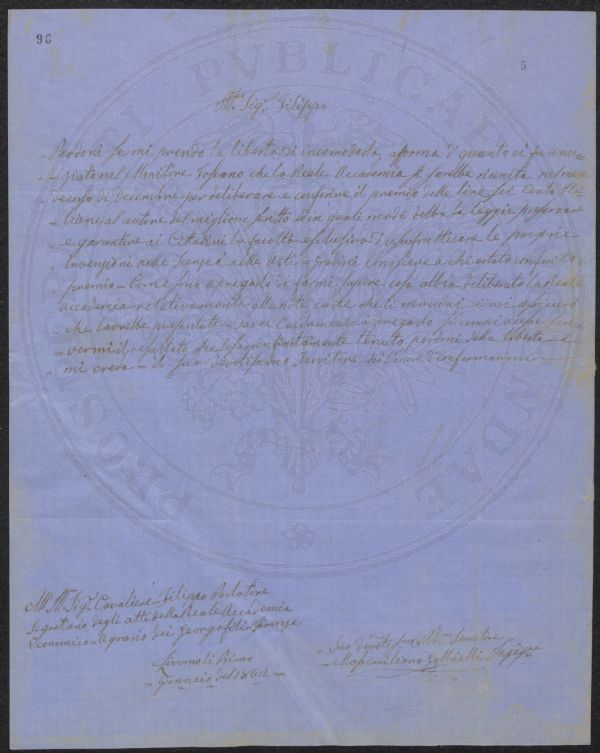 96
5
Sig.r Filippo
Perdoni se mi prendo la libertà di incomodarla, a forma di quanto ci fu anun=
ziato nel Monitore Toscano che la Reale Accademia si sarebbe riunita nel mese
decorso di Decembre per deliberare e conferire il premio delle Lire sei Cento Ita=
liane al autore del migliore scritto in quale modo debba la Leggie preservare
e garantire ai Cittadini la facoltà esclusiva d'usufrutticare le proprie
invenzioni nelle Sienze e nelle Arti = conoscere a chi è stato conferito
premio = Come sono a pregarlo di farmi sapere cosa abbia deliberato la Reale
accademia relativamente alle note carte che li mandai e mi assicurò
che l'avrebbe presentate = Sarei a pregarlo
vermi il resultato che le sarò infinitamente tenuto perdoni della libertà e
mi creda = il Suo devotissimo Servitore ho l'onore di confermarmi
Sig.r Cavaliere Filippo Parlatore
Segretario degli atti della Reale Accademia
Economico = agrario dei Georgofili = Firenze
Livorno li Primo
Gennaio del 1862
Suo Servitore
Massimiliano